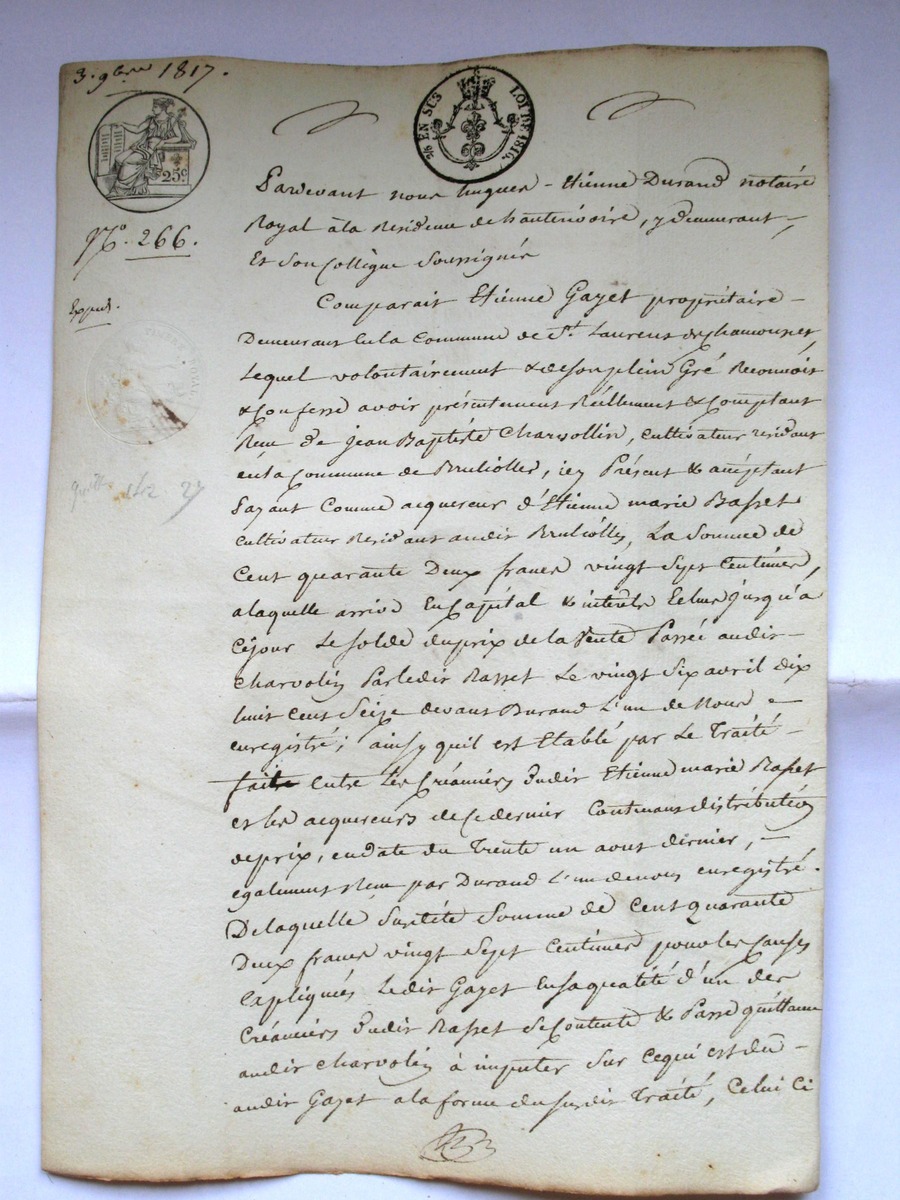 3. 9bre 1817.
2/10 EN SUS LOI DE 1816.
25c.
N°. 266.
Exped.
ROYAL
Pardevant nous hugues - Etienne Durand notaire
Royal à la Residence de hauterivoire, y demeurant,
Et Son Collègue Soussignés
Comparait Etienne Gayet propriétaire
Demeurant En la Commune de St. Laurent de Chamousset,
Lequel volontairement & de Son plein Gré Reconnoit
& Confesse avoir présentement Réellement & Comptant
Reçu de Jean Baptiste Charvollin, Cultivateur résidant
en la Commune de Bruliolles, icy Présent & acceptant
Payant Comme acquereur d'Etienne marie Basset
Cultivateur Residant audit Brulliolles, La Somme de
Cent quarante Deux francs vingt Sept Centimes,
a laquelle arrive En Capital & intérêts Echus jusqu'à
Céjour Le Solde du prix de la Vente Passée audit
Charvolin Par ledit Basset Le vingt Six avril dix
huit Cent Seize devant Durand L'un de Nous
enregistré; ainsy quil est Etablé par Le Traité
faite entre Les Créanciers dudit Etienne marie Basset
et les acquereurs de Ce dernier Contenant distribution
de prix, en date du Trente un aout dernier,
également Reçu par Durand L'un de nous enregistré.
De laquelle Susdite Somme de Cent quarante
Deux francs vingt Sept Centimes pour les Causes
Expliquées Ledit Gayet En Sa qualité d'un des
Créanciers dudit Basset Se Contente & Passe quittance
audit Charvolin à imputer Sur Ce qui est du
audit Gayet a la forme du Susdit Traité, Celui Ci